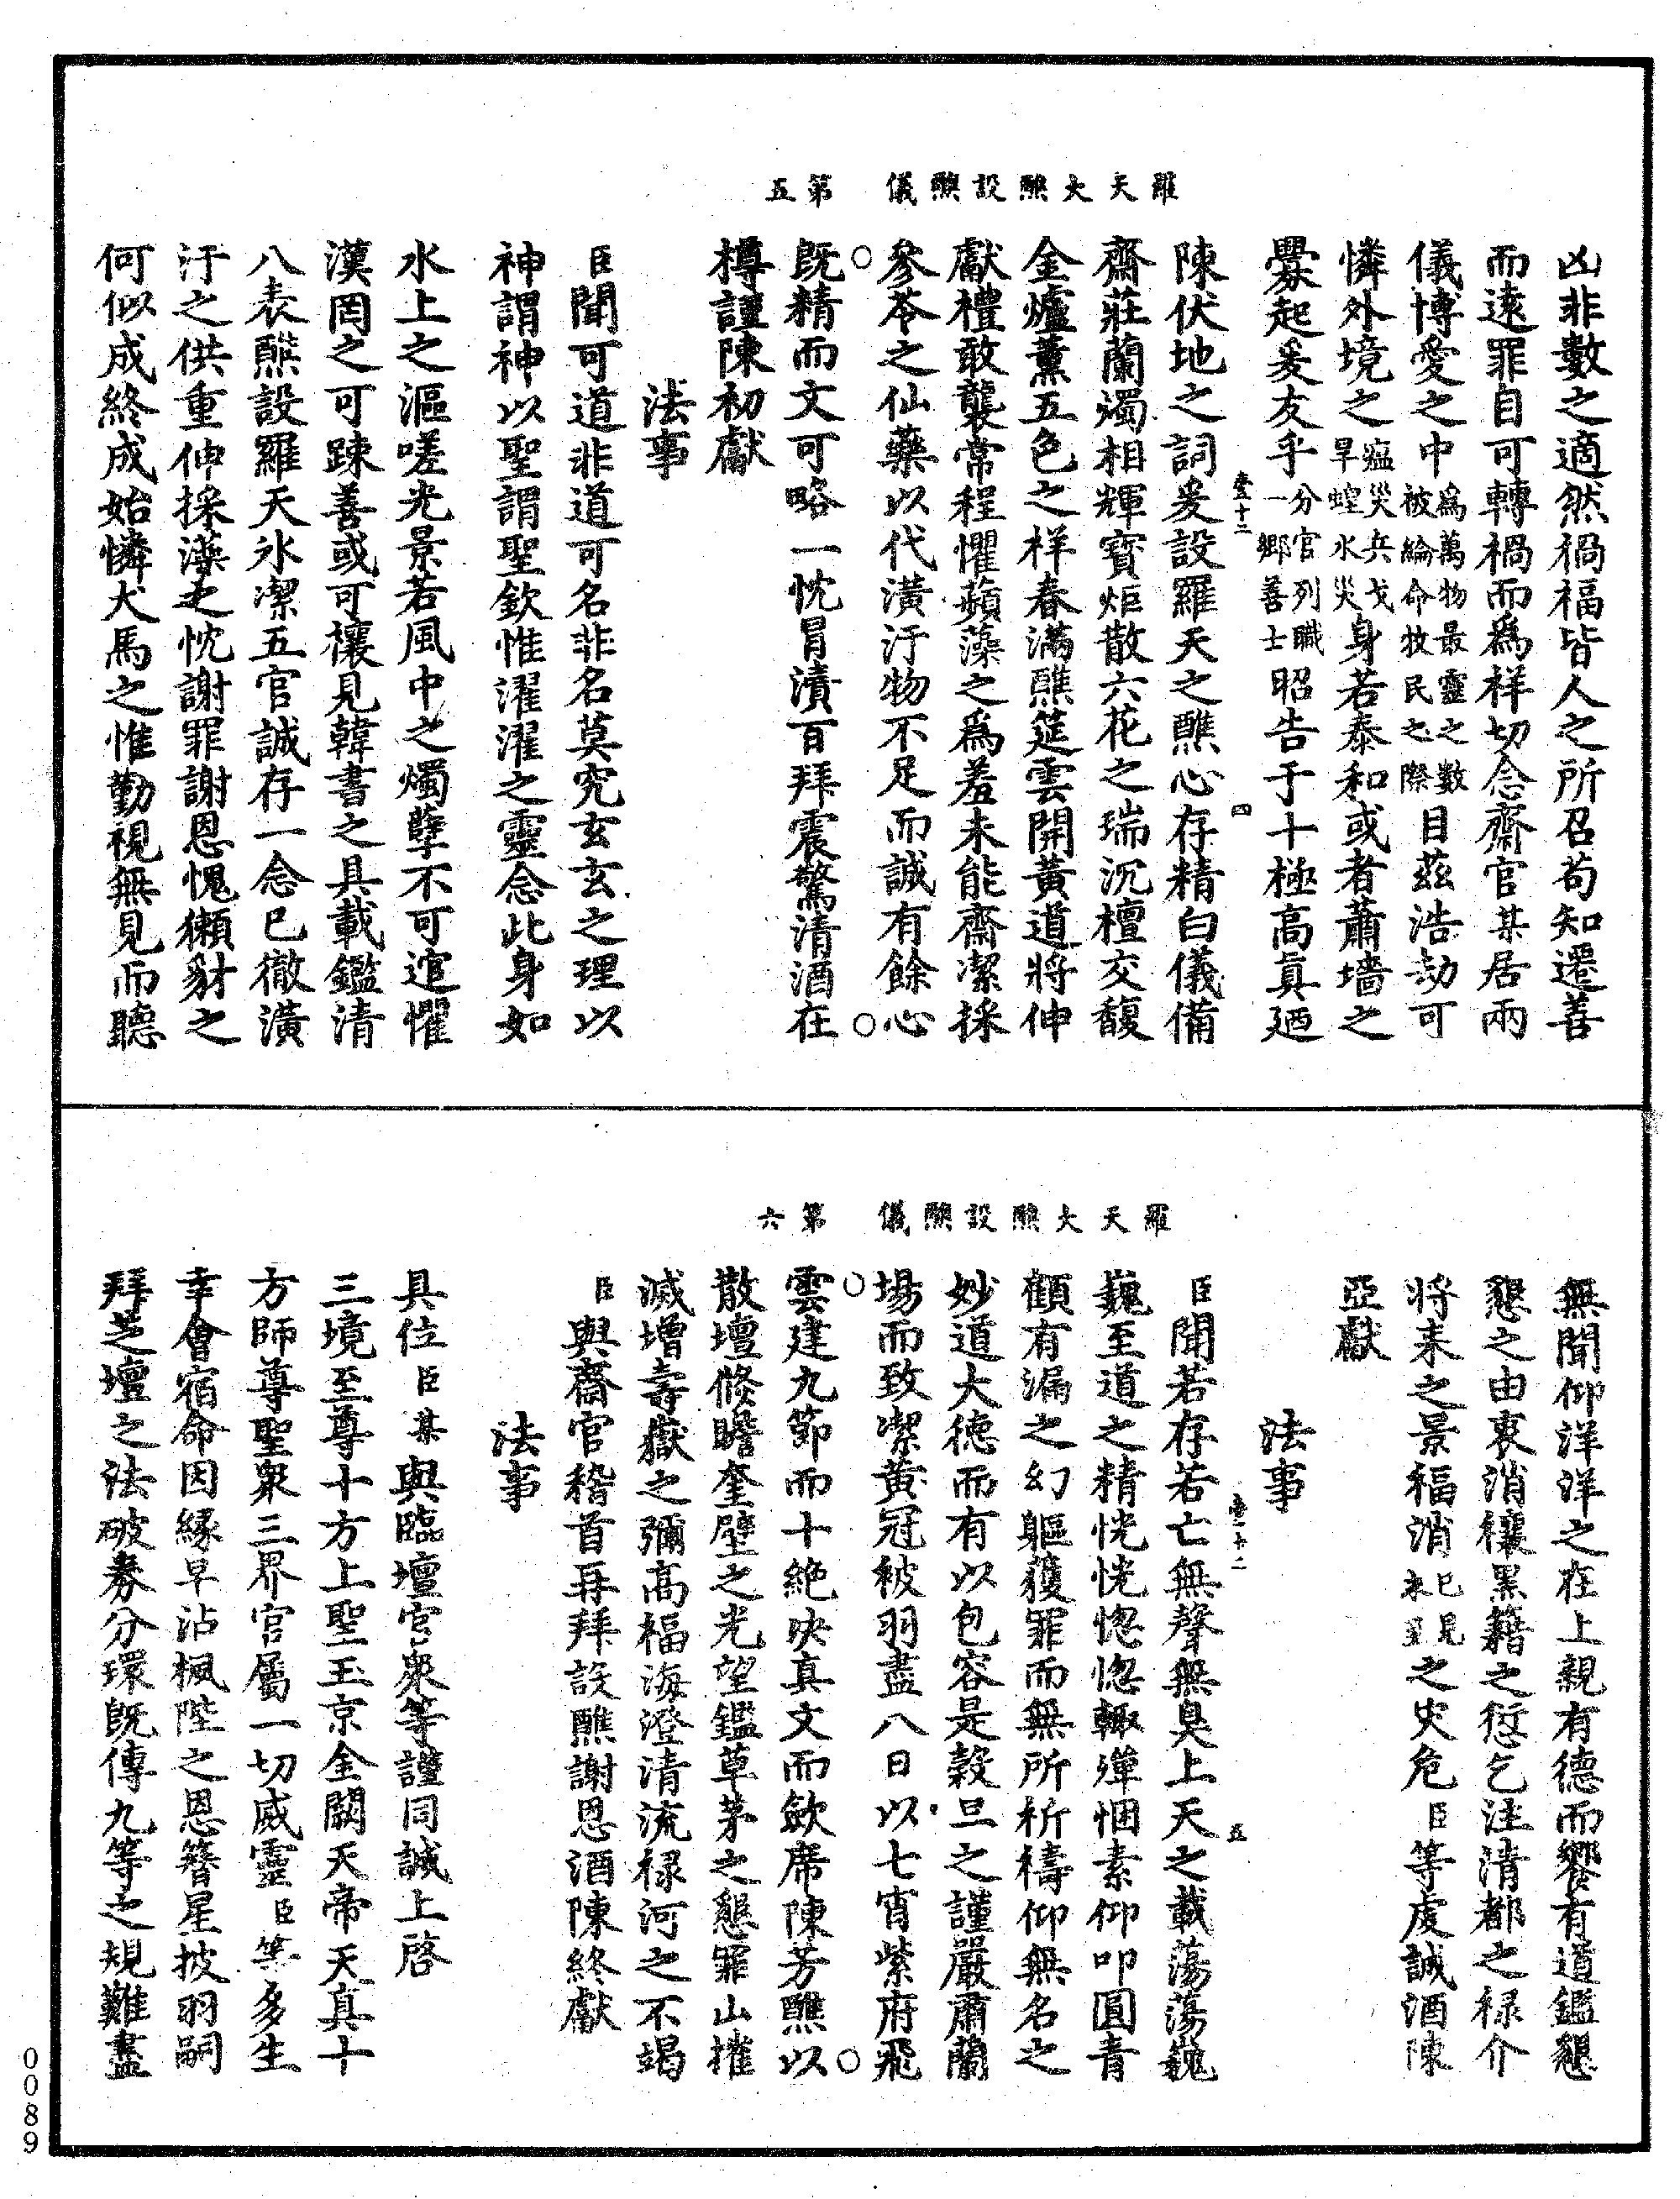 羅天大醮設醮儀　第五
凶非數之適然禍福皆人之所召苟知遷善
而遠罪自可轉禍而爲祥切念齋官某居兩
儀博愛之中爲萬物最靈之數被綸命牧民之際目茲浩劫可
憐外境之瘟災兵戈旱蝗水災身若泰和或者蕭墻之
釁起爰友乎分官列職一鄉善士昭告于十極高眞廼
陳伏地之詞爰設羅天之醮心存精白儀備
齋莊蘭燭相輝寳炬散六花之瑞沉檀交馥
金爐薰五色之祥春滿醮筵雲開黃道將伸
獻禮敢襲常程懼蘋藻之爲羞未能齋潔採
參苓之仙藥以代潢汙物不足而誠有餘心
旣精而文可略一忱冒瀆百拜震驚清酒在
樽謹陳初獻
法事
臣聞可道非道可名非名莫究玄玄之理以
神謂神以聖謂聖欽惟濯濯之靈念此身如
水上之漚嗟光景若風中之燭孽不可逭懼
漢罔之可踈善或可禳見韓書之具載鑑清
八表醮設羅天氷潔五官誠存一念已徹潢
汙之供重伸採藻之忱謝罪謝恩愧獺豺之
何似成終成始憐犬馬之惟勤視無見而聽
羅天大醮設醮儀　第六
無聞仰洋洋之在上親有德而饗有道鑑懇
懇之由衷消穰黑籍之愆乞注清都之祿介
將来之景福消已見未萌之灾危臣等虔誠酒陳
亞獻
法事
臣聞若存若亡無聲無臭上天之載蕩蕩巍
巍至道之精恍恍惚惚輙殫悃素仰叩圓青
顧有漏之幻軀獲罪而無所祈禱仰無名之
妙道大德而有以包容是穀旦之謹嚴肅蘭
場而致潔黄冠被羽盡八日以七宵紫府飛
雲建九節而十絶决真文而歛席陳芳醮以
散壇脩瞻奎壁之光望鑑草茅之懇罪山摧
滅增壽嶽之彌高福海澄清流祿河之不竭
臣與齋官稽首再拜設醮謝恩酒陳終獻
法事
具位臣某與臨壇官衆等謹同誠上啓
三境至尊十方上聖玉京金闕天帝天真十
方師尊聖衆三界官屬一切威靈臣等多生
幸會宿命因縁早沾楓陛之恩簪星披羽嗣
拜芝壇之法破劵分環旣傳九等之規難盡
0089